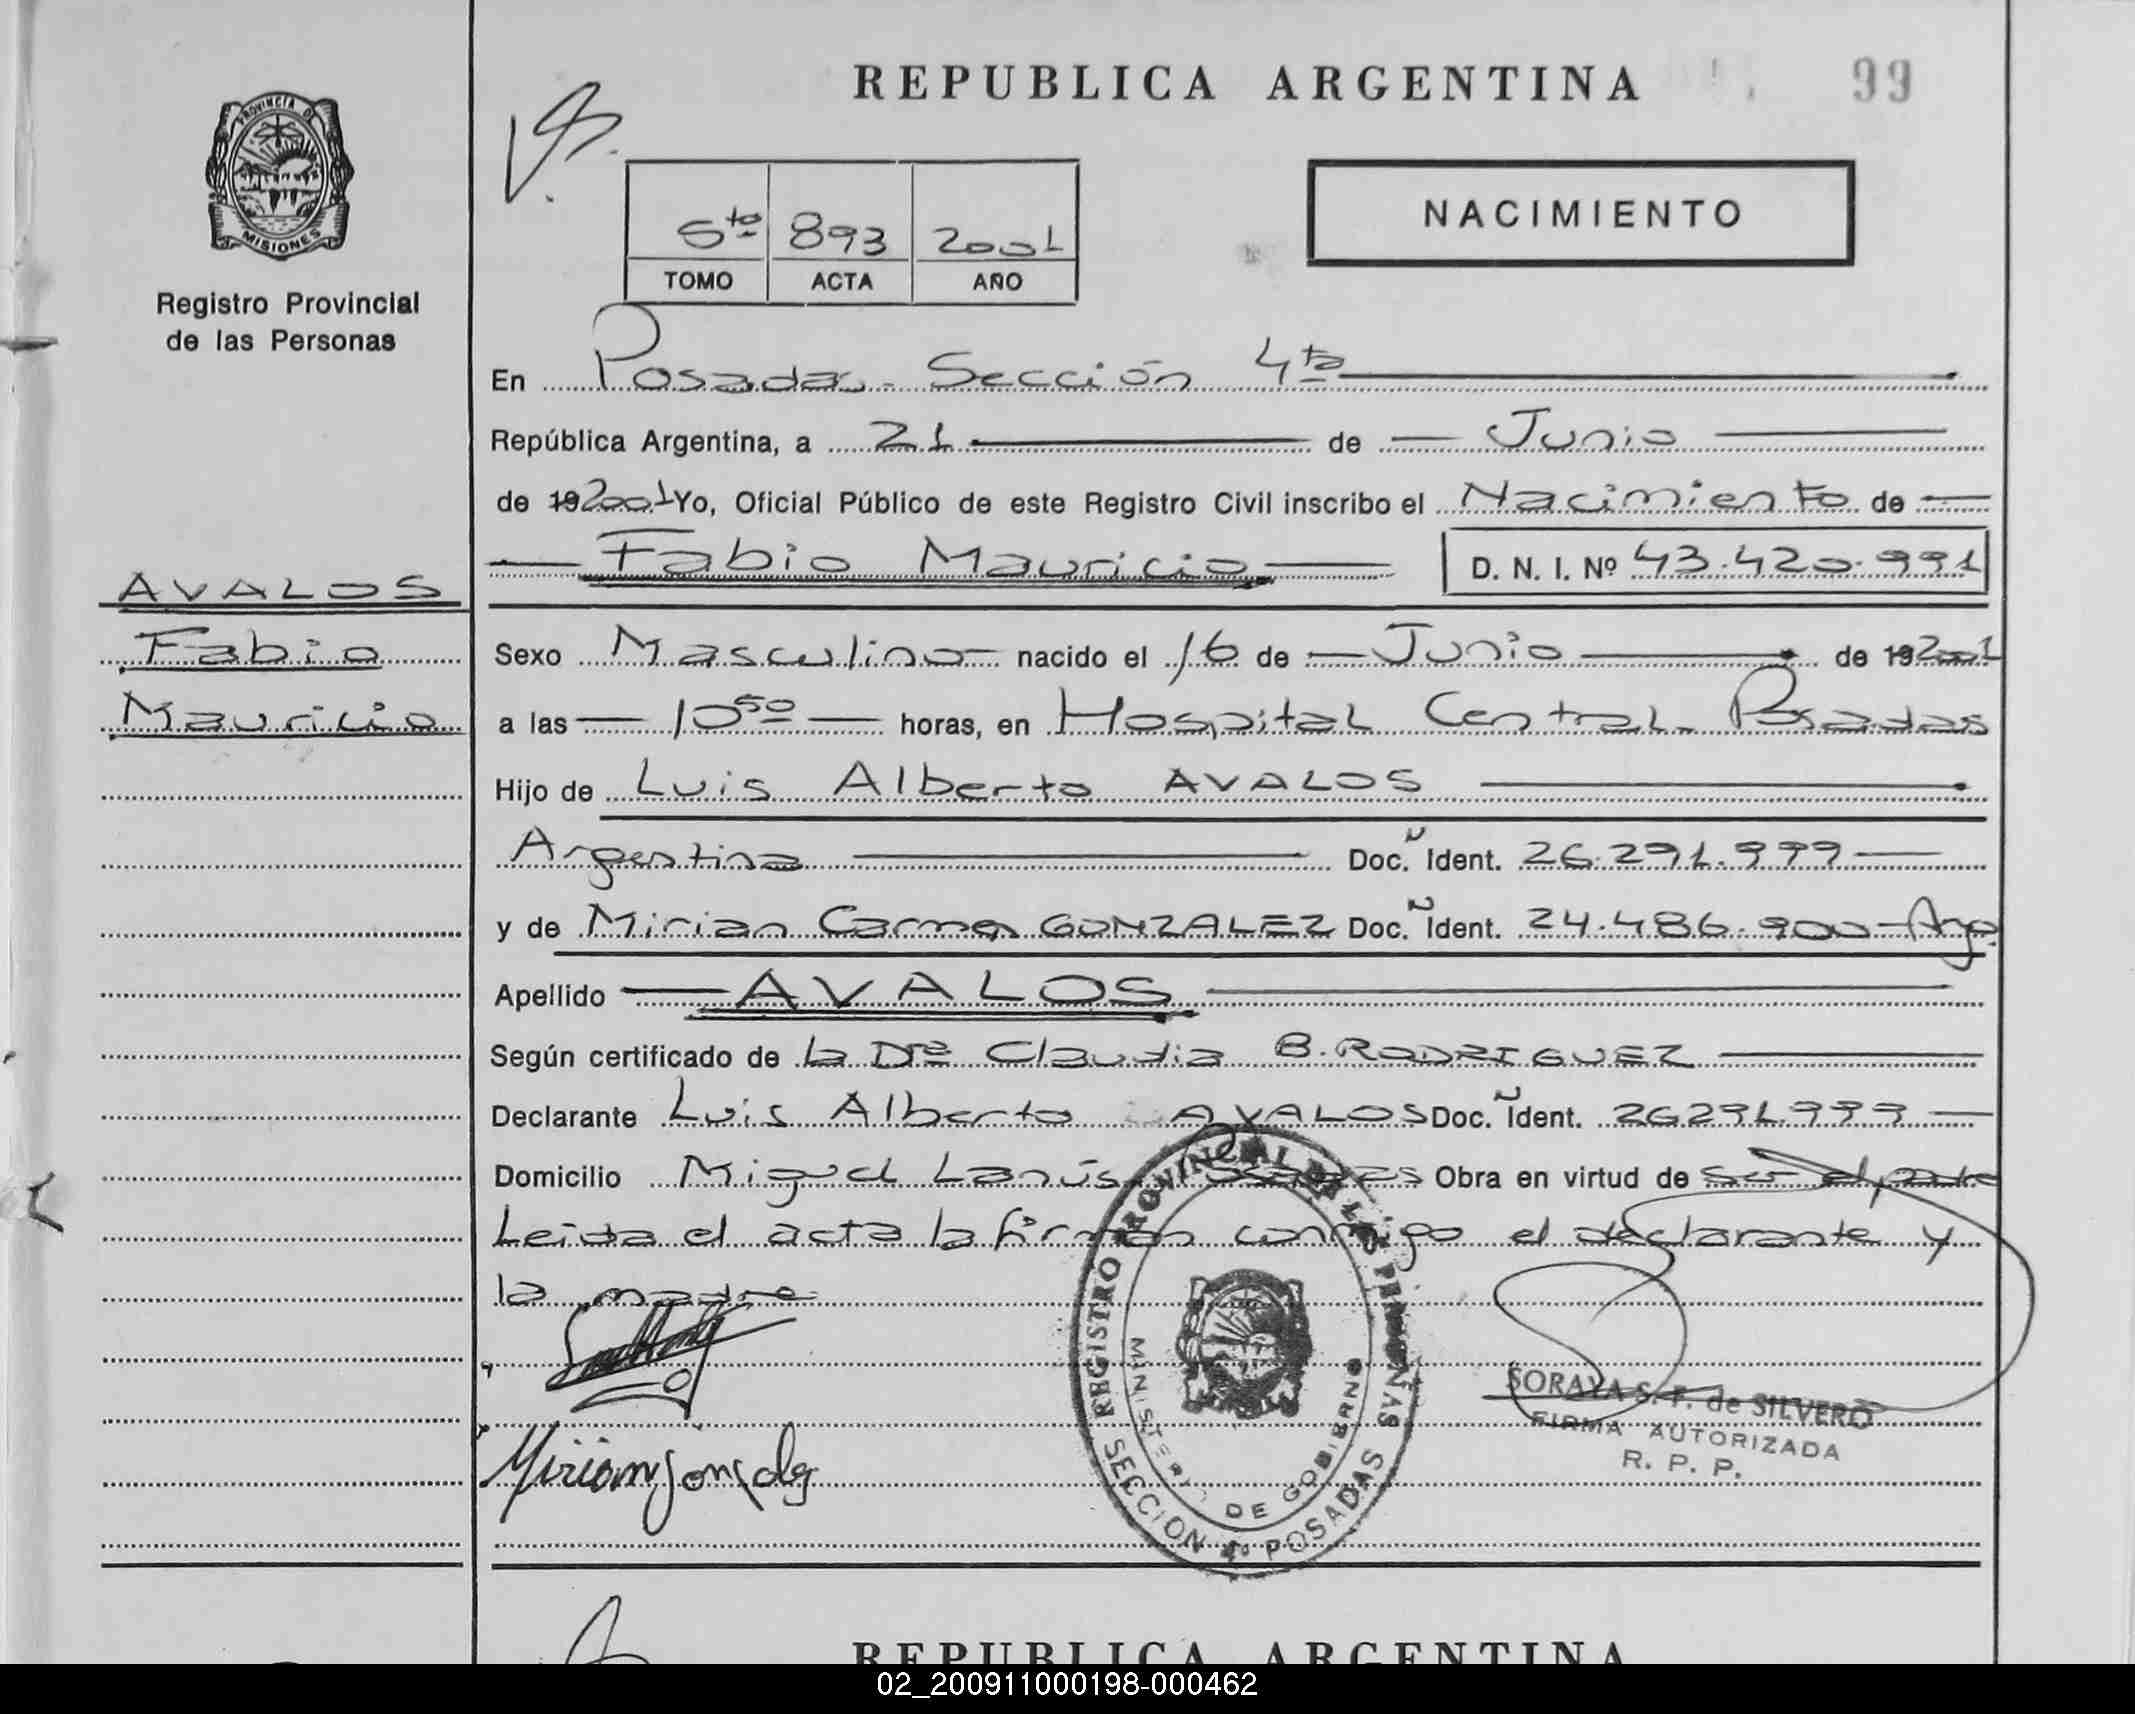 REPUBLICA ARGENTINA 99
PROVINCIA DE
MISIONES
Registro Provincial
de las Personas
5to 893 2001
TOMO ACTA AÑO
NACIMIENTO
En Posadas - Sección 4ta
República Argentina, a 21 de Junio
de 19 2001 Yo, Oficial Público de este Registro Civil inscribo el Nacimiento de
Fabio Mauricio D. N. I. Nº 43.420.991
AVALOS
Fabio
Mauricio
Sexo Masculino nacido el 16 de Junio de 19 2001
a las 10 50 horas, en Hospital Central - Posadas
Hijo de Luis Alberto AVALOS
Argentina Doc. Ident. 26.291.999
y de Mirian Carmen GONZALEZ Doc. Ident. 24.486.900 - Arg
Apellido AVALOS
Según certificado de la Dra Claudia B. RODRIGUEZ
Declarante Luis Alberto AVALOS Doc. Ident. 26291.999
Domicilio Miguel Lanús Posadas Obra en virtud de ser el padre
Leida el acta la firman conmigo el declarante y
la madre
REGISTRO PROVINCIAL DE LAS PERSONAS
MINISTERIO DE GOBIERNO
SECCION 4ª POSADAS
SORAYA S. F. de SILVERO
FIRMA AUTORIZADA
R. P. P.
Mirian Gonzalez
REPUBLICA ARGENTINA
02_200911000198-000462